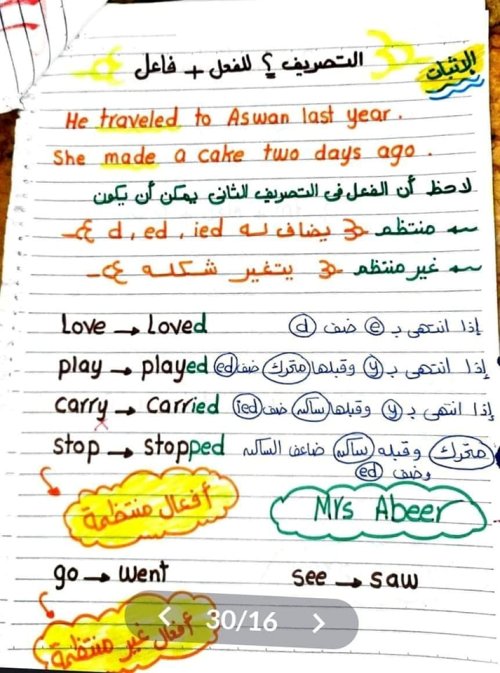 الإثبات
التصريف ٢ للفعل + فاعل
He traveled to Aswan last year.
She made a cake two days ago.
لاحظ أن الفعل في التصريف الثاني يمكن أن يكون
منتظم يضاف له d, ed, ied
غير منتظم يتغير شكله
Love → Loved إذا انتهى بـ e ضف d
play → played إذا انتهى بـ y وقبلها متحرك ضف ed
carry → carried إذا انتهى بـ y وقبلها ساكن ضف ied
stop → stopped متحرك وقبله ساكن ضاعف الساكن
وضف ed
أفعال منتظمة
Mrs Abeer
go → went see → saw
30/16
أفعال غير منتظمة